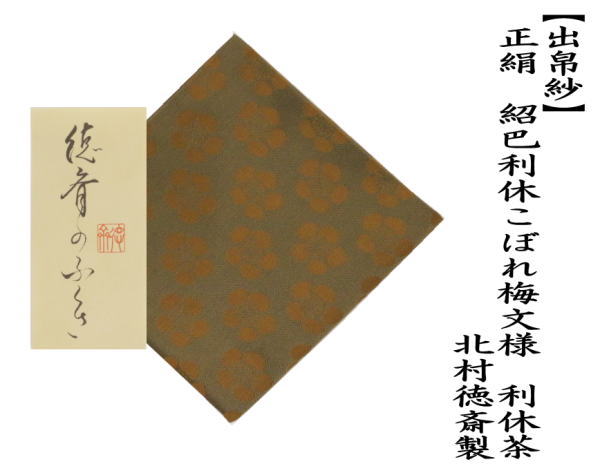 【出帛紗】
正絹　紹巴利休こぼれ梅文様　利休茶
北村徳斎製
徳斎のふくさ